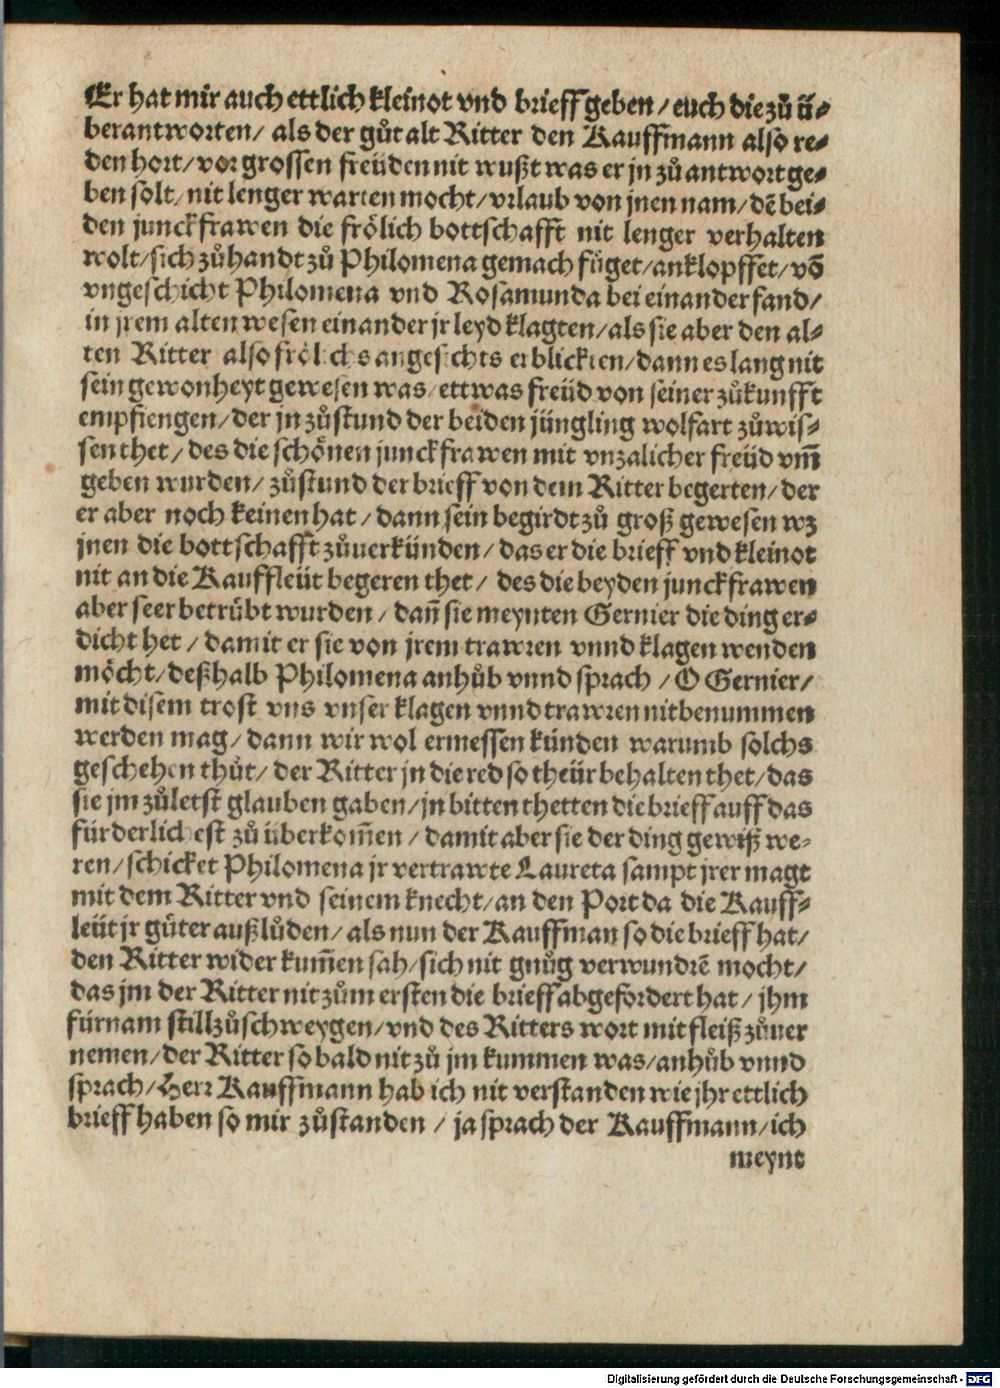 Er hat mir auch ettlich kleinot vnd brieff geben / euch die zuͦ uͤ⸗
berantworten / als der guͦt alt Ritter den Kauffmann also re⸗
den hort / vor grossen freüden nit wußt was er jn zuͦ antwort ge⸗
ben solt / nit lenger warten mocht / vrlaub von jnen nam / dẽ bei⸗
den junckfrawen die froͤlich bottschafft nit lenger verhalten
wolt / sich zuͦhandt zuͦ Philomena gemach fuͤget / anklopffet / võ
vngeschicht Philomena vnd Rosamunda bei einander fand /
in jrem alten wesen einander jr leyd klagten / als sie aber den al⸗
ten Ritter also froͤlichs angesichts erblickten / dann es lang nit
sein gewonheyt gewesen was / ettwas freüd von seiner zuͦkunfft
empfiengen / der jn zuͦstund der beiden jüngling wolfart zuͦwis⸗
sen thet / des die schoͤnen junckfrawen mit vnzalicher freüd vm̃
geben wurden / zuͦstund der brieff von dem Ritter begerten / der
er aber noch keinen hat / dann sein begirdt zuͦ groß gewesen wz
jnen die bottschafft zuͦuerkünden / das er die brieff vnd kleinot
nit an die Kauffleüt begeren thet / des die beyden junckfrawen
aber seer betruͤbt wurden / dañ sie meynten Gernier die ding er⸗
dicht het / damit er sie von jrem trawren vnnd klagen wenden
moͤcht / deßhalb Philomena anhuͦb vnnd sprach / O Gernier /
mit disem trost vns vnser klagen vnnd trawren nit benummen
werden mag / dann wir wol ermessen künden warumb solchs
geschehen thuͦt / der Ritter jn die red so theür behalten thet / das
sie jm zuͦletst glauben gaben / jn bitten thetten die brieff auff das
fürderlichest zuͦ überkom̃en / damit aber sie der ding gewiß we⸗
ren / schicket Philomena jr vertrawte Laureta sampt jrer magt
mit dem Ritter vnd seinem knecht / an den Port da die Kauff⸗
leüt jr guͤter außluͦden / als nun der Kauffman so die brieff hat /
den Ritter wider kum̃en sah / sich nit gnuͦg verwundrẽ mocht /
das jm der Ritter nit zuͦm ersten die brieff abgefordert hat / jhm
fürnam stillzuͦschweygen / vnd des Ritters wort mit fleiß zuͦuer
nemen / der Ritter so bald nit zuͦ jm kummen was / anhuͦb vnnd
sprach / Herr Kauffmann hab ich nit verstanden wie jhr ettlich
brieff haben so mir zuͦstanden / ja sprach der Kauffmann / ich
meynt
Digitalisierung gefördert durch die Deutsche Forschungsgemeinschaft - DFG